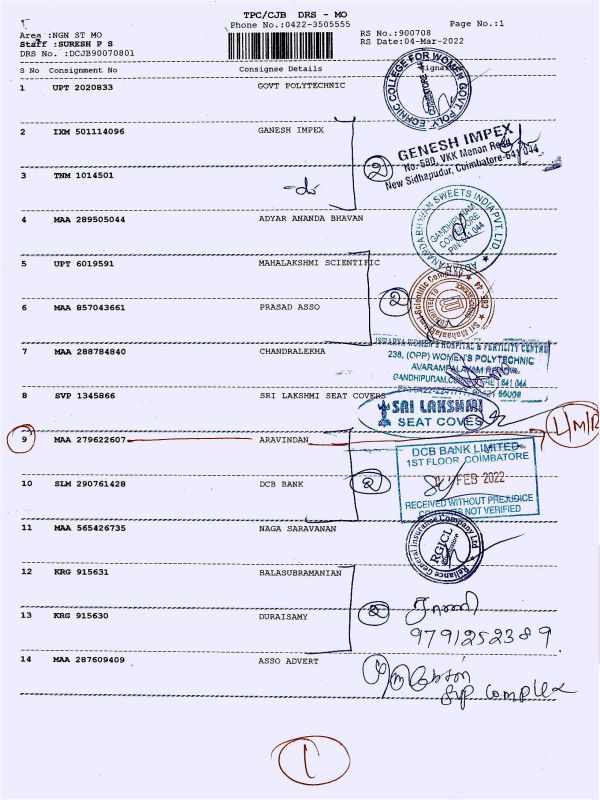 TPC/CJB DRS - MO
Phone No.:0422-3505555
Page No.:1
Area :NGN ST MO
Staff :SURESH P S
DRS No. :DCJB90070801
RS No.:900708
RS Date:04-Mar-2022
S No Consignment No Consignee Details Signature
1 UPT 2020833 GOVT POLYTECHNIC
2 IXM 501114096 GANESH IMPEX
GENESH IMPEX
No. 580, VKK Menon Road,
New Sidhapudur, Coimbatore-641 044
2
3 TNM 1014501
-do-
4 MAA 289505044 ADYAR ANANDA BHAVAN
GANDHIPURAM
PIN 641 044
5 UPT 6019591 MAHALAKSHMI SCIENTIFIC
6 MAA 857043661 PRASAD ASSO
2
7 MAA 288784840 CHANDRALEKHA
WOMEN'S HOSPITAL & FERTILITY CENTRE
238, (OPP) WOMEN'S POLYTECHNIC
AVARAMPALAYAM ROAD
8 SVP 1345866 SRI LAKSHMI SEAT COVERS
SRI LAKSHMI
SEAT COVES
9 MAA 279622607 ARAVINDAN
L/M/R
10 SLM 290761428 DCB BANK
2
DCB BANK LIMITED
1ST FLOOR, COIMBATORE
FEB 2022
RECEIVED WITHOUT PREJUDICE
CONTENTS NOT VERIFIED
11 MAA 565426735 NAGA SARAVANAN
RGICL
Reliance General Insurance Company Ltd
12 KRG 915631 BALASUBRAMANIAN
13 KRG 915630 DURAISAMY
2
9791252389
14 MAA 287609409 ASSO ADVERT
svp complex
1